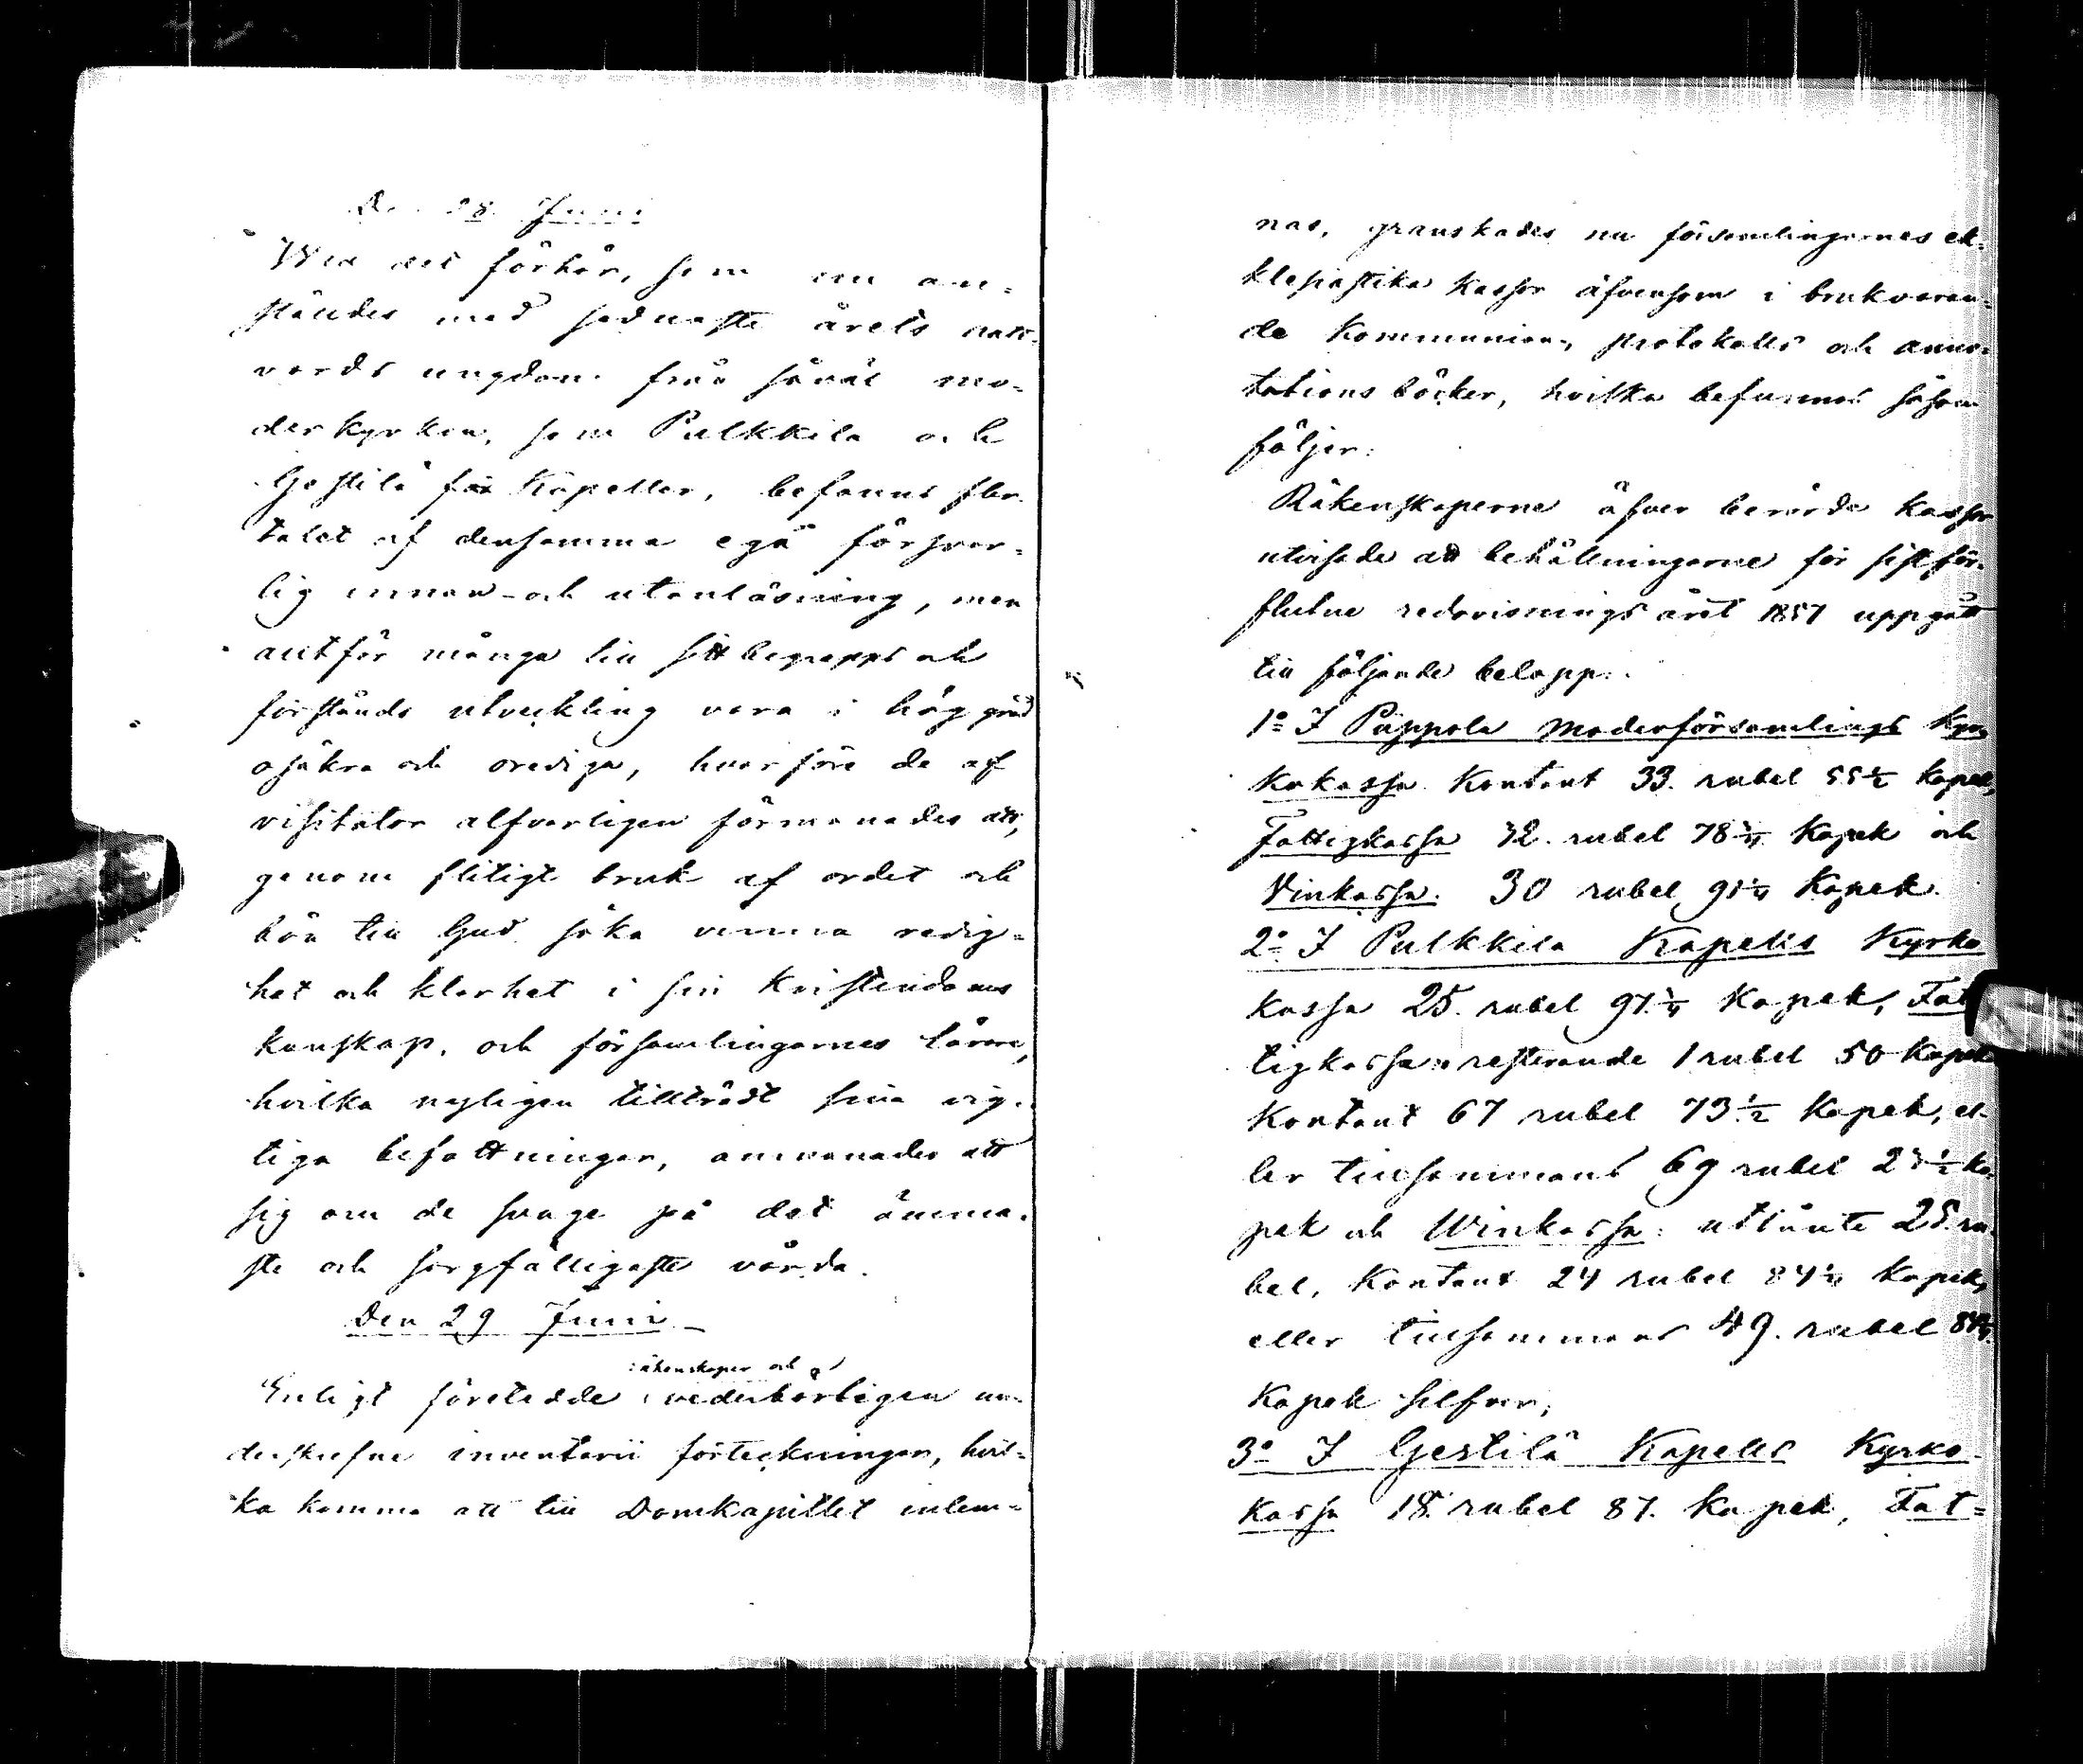 Den 28 Juni
Wid det förhör, som nu an-
stäldes med sednaste årets natt-
vards ungdom från såväl mo-
derkyrkan, som Pulkkila och
Gestilä Kapeller, befanns fler-
talet af densamma egä försvar-
lig innan- och utanläsning, men
allt för många till sitt begrepps och
förstånds utveckling vara i hög grad
osäkra och orediga, hvarföre de af
visitator alfvarligen förmanades att,
genom flitigt bruk af ordet och
bön till Gud söka vinna redig-
het och klarhet i sin Kristendoms
kunskap, och församlingarnes lärare,
hvilka nyligen tillträdt sina vig-
tiga befattningar, anmanades att
sig om de svage på det ömma-
ste och sorgfälligaste vårda.
Den 29 Juni
räkenskaper och
Enligt företedde vederbörligen un-
derskrefne inventarii förteckningar, hvil-
ka komma att till Domkapitlet inlem-
nas, granskades nu församlingarnes ek-
klesiastika Kassor äfvensom i brukvaran-
de Kommunion, protokolls och anno-
tations böcker, hvilka befunnos såsom
följer:
Räkenskaperne öfver berörda Kassor
utvisade att behållningarne för sist för-
flutne redovisnings året 1857 uppgått
till följande belopp:
1o I Pippola Moderförsamlings Kyr-
kokassa Kontant 33. rubel 55 1/2 kopek,
Fattigkassa 32. rubel 78 3/4 Kopek och
Vinkassa. 30 rubel 91 1/4 Kopek.
2o I Pulkkila Kapells Kyrko
kassa 25. rubel 91 1/4 Kopek, Fat-
tigkassa resterande 1 rubel 50 Kopek
Kontant 67 rubel 73 1/2 Kopek, el-
ler tillsammans 69 rubel 23 1/2 ko-
pek och Winkassa: utlånte 25. ru-
bel, Kontant 24 rubel 84 1/4 Kopek,
eller tillsammans 49. rubel 84 1/4
Kopek silfver,
3o I Gestilä Kapells Kyrko-
Kassa 18. rubel 87. Kopek, Fat-